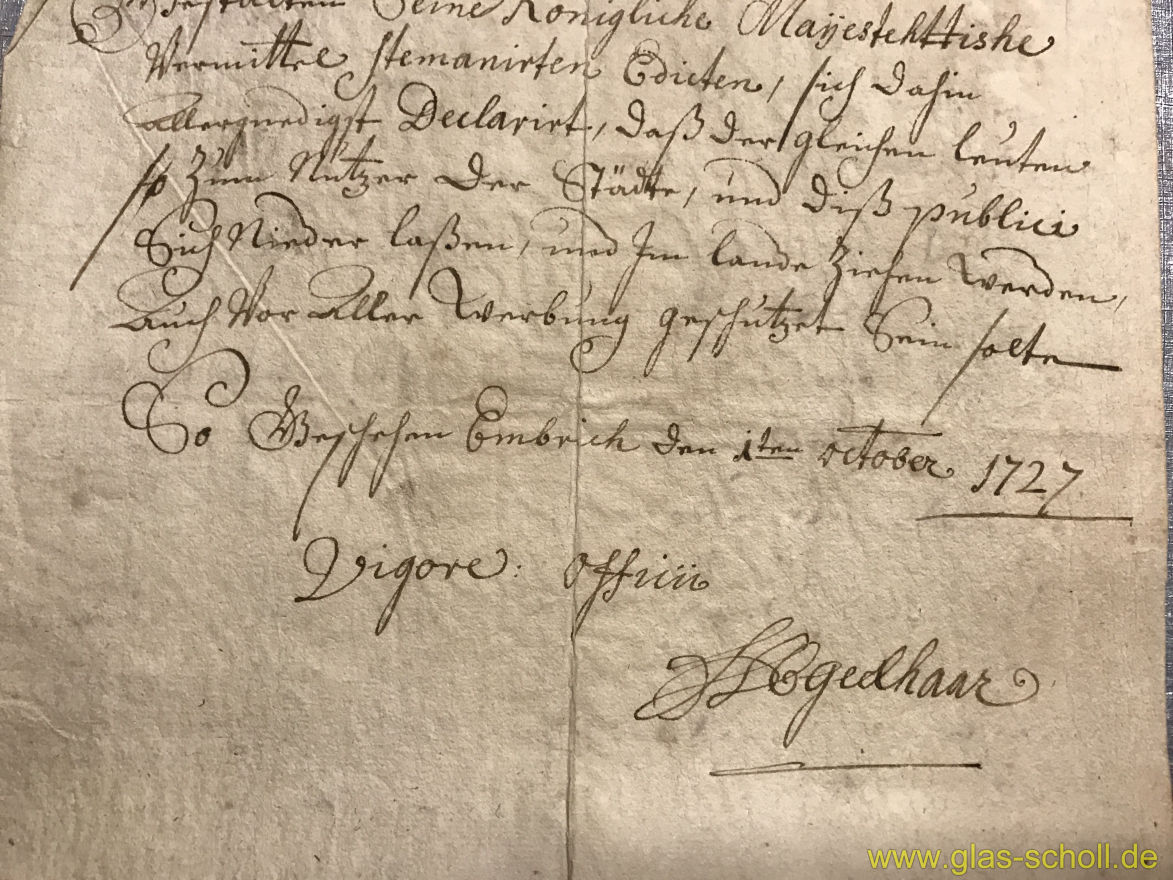 Gestalten Seine Königliche Mayestehttishe
Vermittel stemanirten Edicten, sich dahin
Allergnedigst Declarirt, daß der gleichen leuten
so Zum Nutzen der Städte, und deß publici
Sich Nieder laßen, und Im lande Ziehen werden,
Auch Vor Aller werbung geschützet Sein solte
So Geschehen Embrich den 1ten october 1727
Vigore: officii
www.glas-scholl.de